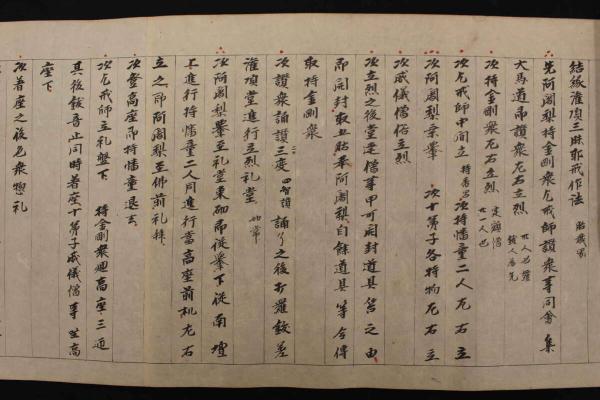 結縁灌頂三昧耶戒作法 胎蔵界
先阿闍梨持金剛衆乞戒師讃衆等同會集
大馬道即讃衆左右立烈
次持金剛衆左右立烈
次乞戒師中間立 次持幡童二人左右立
次阿闍梨乗轝 次十弟子各持物左右立
次威儀僧俗立烈
次立烈之後堂達僧等申可開封道具筥之由
即開封取出賜奉阿闍梨自餘道具等令傳
取持金剛衆
次讃衆誦讃三反 四智讃 誦了之後打羅鈸差
灌頂堂進行立烈礼堂 如常
次阿闍梨轝至礼堂東砌即従轝下従南壇
上進行持幡童二人同進行當高座前机左右
立之即阿闍梨至佛前礼拝
次登高座即持幡童退去
次乞戒師立礼盤下 持金剛衆廻高座三迊
其後鈸音止同時着座十弟子威儀僧等坐高
座下
次着座之後色衆惣礼